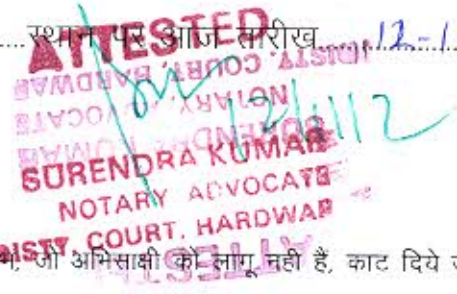 स्थान पर आज तारीख 12-1
ATTESTED
12/1/12
SURENDRA KUMAR
NOTARY ADVOCATE
DISTT. COURT. HARDWAR
जो अभिसाक्षी को लागू नही हैं, काट दिये